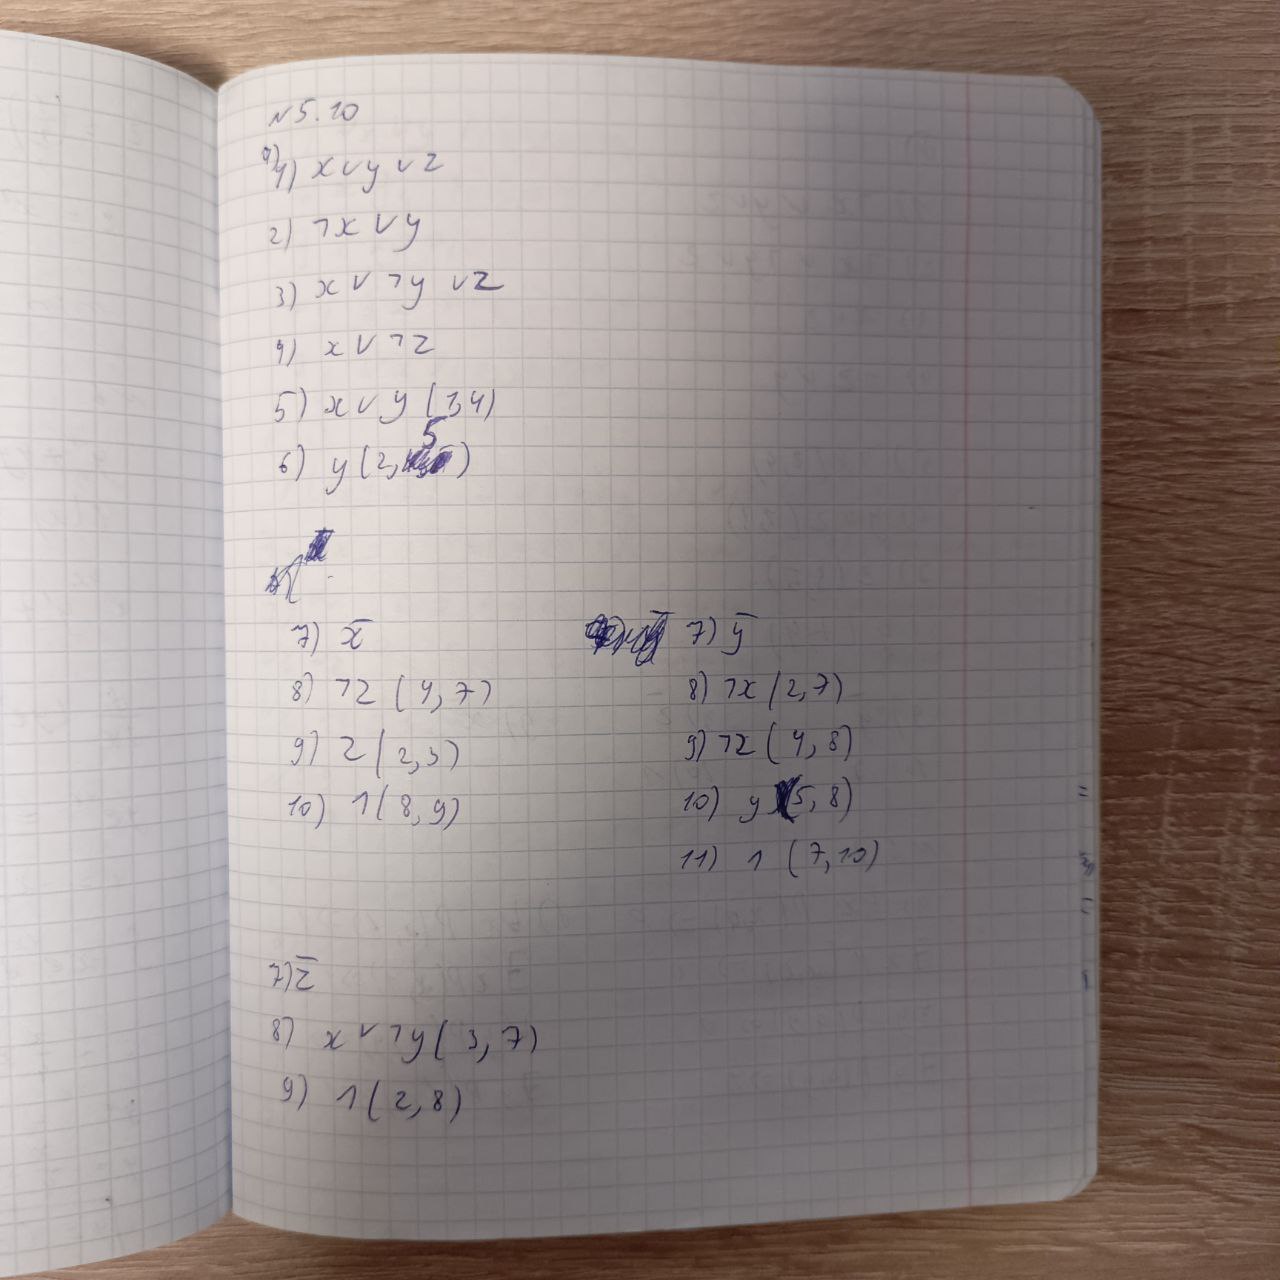 N5.10
a)
1) x ∨ y ∨ z
2) ¬x ∨ y
3) x ∨ ¬y ∨ z
4) x ∨ ¬z
5) x ∨ y (1,4)
6) y (2, 5)
7) x̅
8) ¬z (4,7)
9) z (2,3)
10) 1 (8,9)
7) y̅
8) ¬x (2,7)
9) ¬z (4,8)
10) y (5,8)
11) 1 (7,10)
7) z̅
8) x ∨ ¬y (3,7)
9) 1 (2,8)